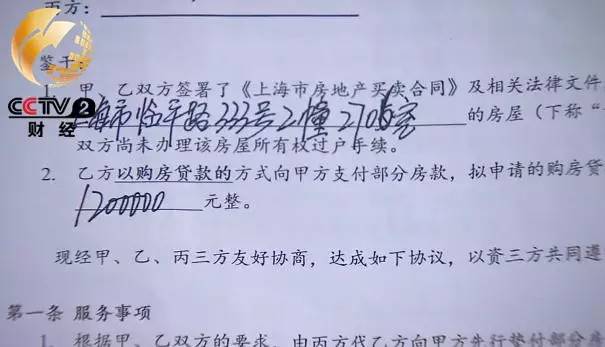 丙方：
鉴于：
1. 甲、乙双方签署了《上海市房地产买卖合同》及相关法律文件
海市临平路333号2幢2706室的房屋（下称“
双方尚未办理该房屋所有权过户手续。
2. 乙方以购房贷款的方式向甲方支付部分房款，拟申请的购房贷
1200000元整。
现经甲、乙、丙三方友好协商，达成如下协议，以资三方共同遵
第一条 服务事项
1. 根据甲、乙双方的要求，由丙方代乙方向甲方先行垫付部分房
CCTV 2
财经